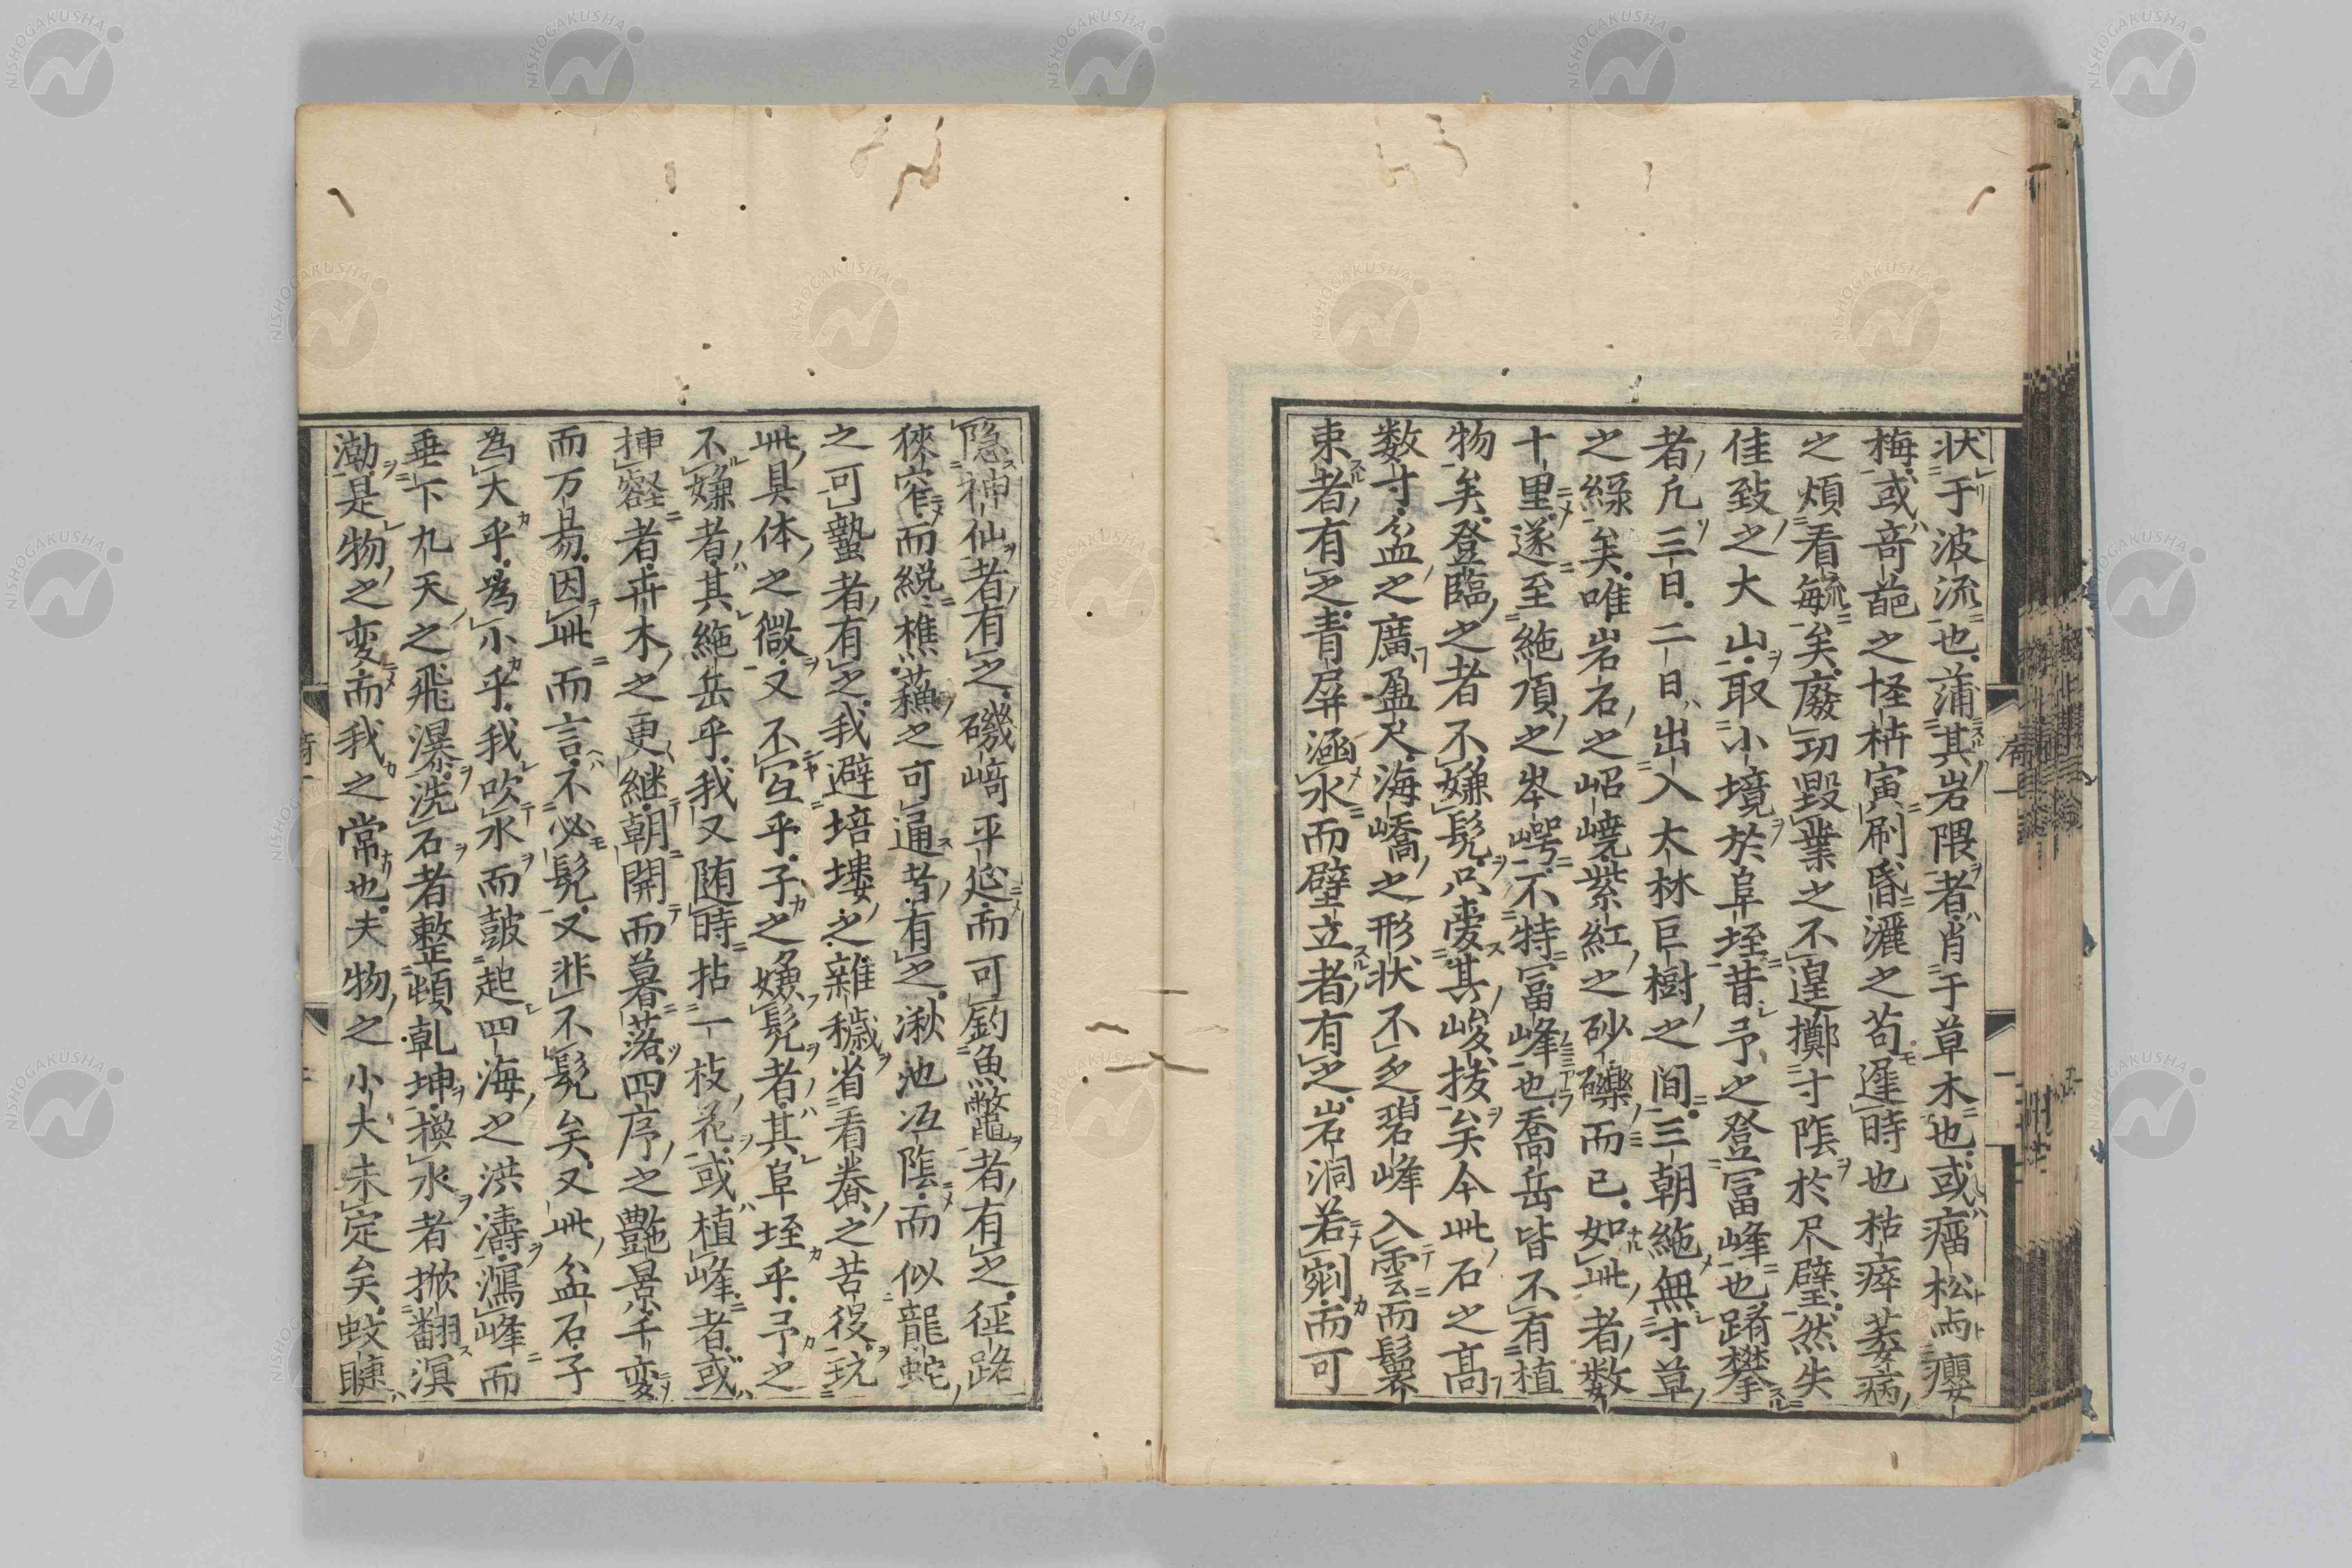 状于波流也蒲其岩隈者肖于草木也或瘤松両癭
梅或奇葩之怪枿寅刷昏灑之苟遅時也枯瘁萎病
之煩看毓矣廢功毀業之不遑擲寸陰於尺璧然失
佳致之大山取小境於阜垤昔予之登冨峰也躋攀
者凡三日二日出入大林巨樹之間三朝絁無寸草
之緑矣唯岩石之岹嶢紫紅之砂礫而已如此者数
十里遂至絁頂之岑崿不特冨峰也喬岳皆不有植
物矣登臨之者不嫌髡只愛其峻抜矣今此石之髙
数寸盆之廣盈尺海嶠之形状不乏碧峰入雲而鬟
束者有之青屏涵水而壁立者有之岩洞若剜而可
隐神仙者有之磯﨑平逈而可釣魚鼈者有之徑路
穽而絻樵蘓之可通者有之湫池冱陰而似龍蛇
之可蟄者有之我避培塿之雜穢省看養之苦役玩
此具体之微又不宐乎子之嫌髡者其阜垤乎予之
不嫌者其絁岳乎我又随時拈一枝花或植峰者或
挿壑者卉木之更継朝開而暮落四序之艶景千変
而万昜因此而言不必髡又非不髡矣又此盆石子
為大乎為小乎我吹水而皷起四海之洪濤瀉峰而
垂下九天之飛瀑洗石者整頓乹坤換水者掀翻溟
渤是物之変而我之常也夫物之小大未定矣蚊睫
序
NISHOGAKUSHA